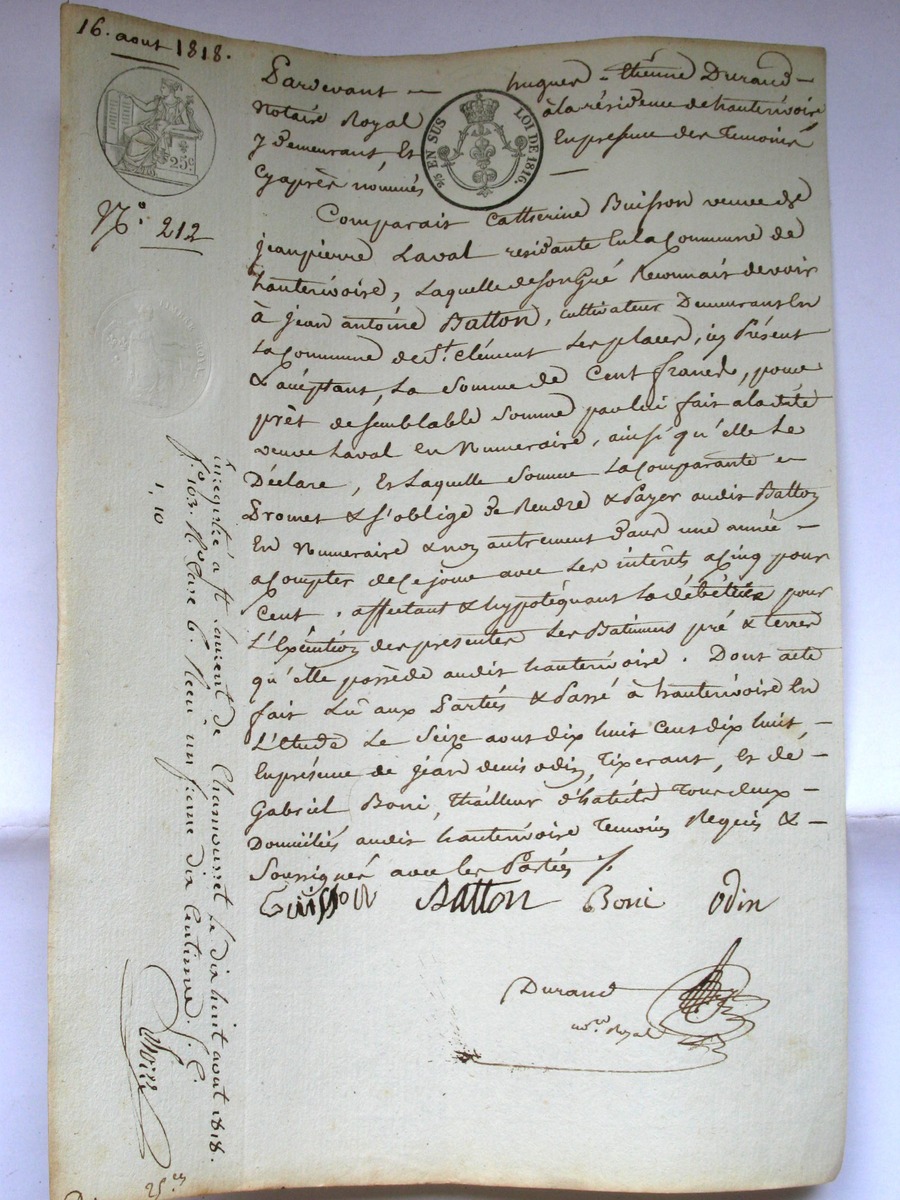 16. aout 1818.
25c
N.º 212
2/5 EN SUS LOI DE 1816.
Pardevant — hugues - Etiénne Durand —
Notaire Royal à la résidence de hauterivoire
y Demeurant Et En presence des Temoins
Cyaprès nommés —
Comparait Catherine Buisson veuve de
jeanpierre Laval residante En la Commune de
hauterivoire, Laquelle de son Gré Reconnait devoir
à jean antoine Batton, Cultivateur Demeurant En
La Commune de St. Clément Les places, icy Présent
& acéptant, La Somme de Cent francs, pour
prêt de semblable Somme par lui fait a la dite
veuve Laval en Numeraire, ainsi qu'elle Le
Déclare, Et Laquelle Somme La Comparante —
Promet & s'oblige de Rendre & Payer audit Batton
En Numeraire & non autrement dans une année —
a Compter de Ce jour avec Les interêts a Cinq pour
Cent. affectant & hypotéquant La débétrice pour
L'Exécution des presentes Les Batimens pré & terres
qu'elle possède audit hauterivoire. Dont acte
fait Lû aux Partiés & Passé à hauterivoire En
L'étude Le Seize aout dix huit Cent dix huit, —
En présence de jean denis odin, Tixerant, Et de —
Gabriel Boni, Thailleur d'habits Tous deux —
Domiciliés audit hauterivoire Temoins Requis & —
Soussignés avec les Partiés ./.
Buisson Batton Boni Odin
Durand
no.re Royal
Enregistré a St. Laurent de Chamousset Le dix huit aout 1818.
f.º 103. R.º Case 6. Reçu un franc dix Centimes.
1, 10
25.c